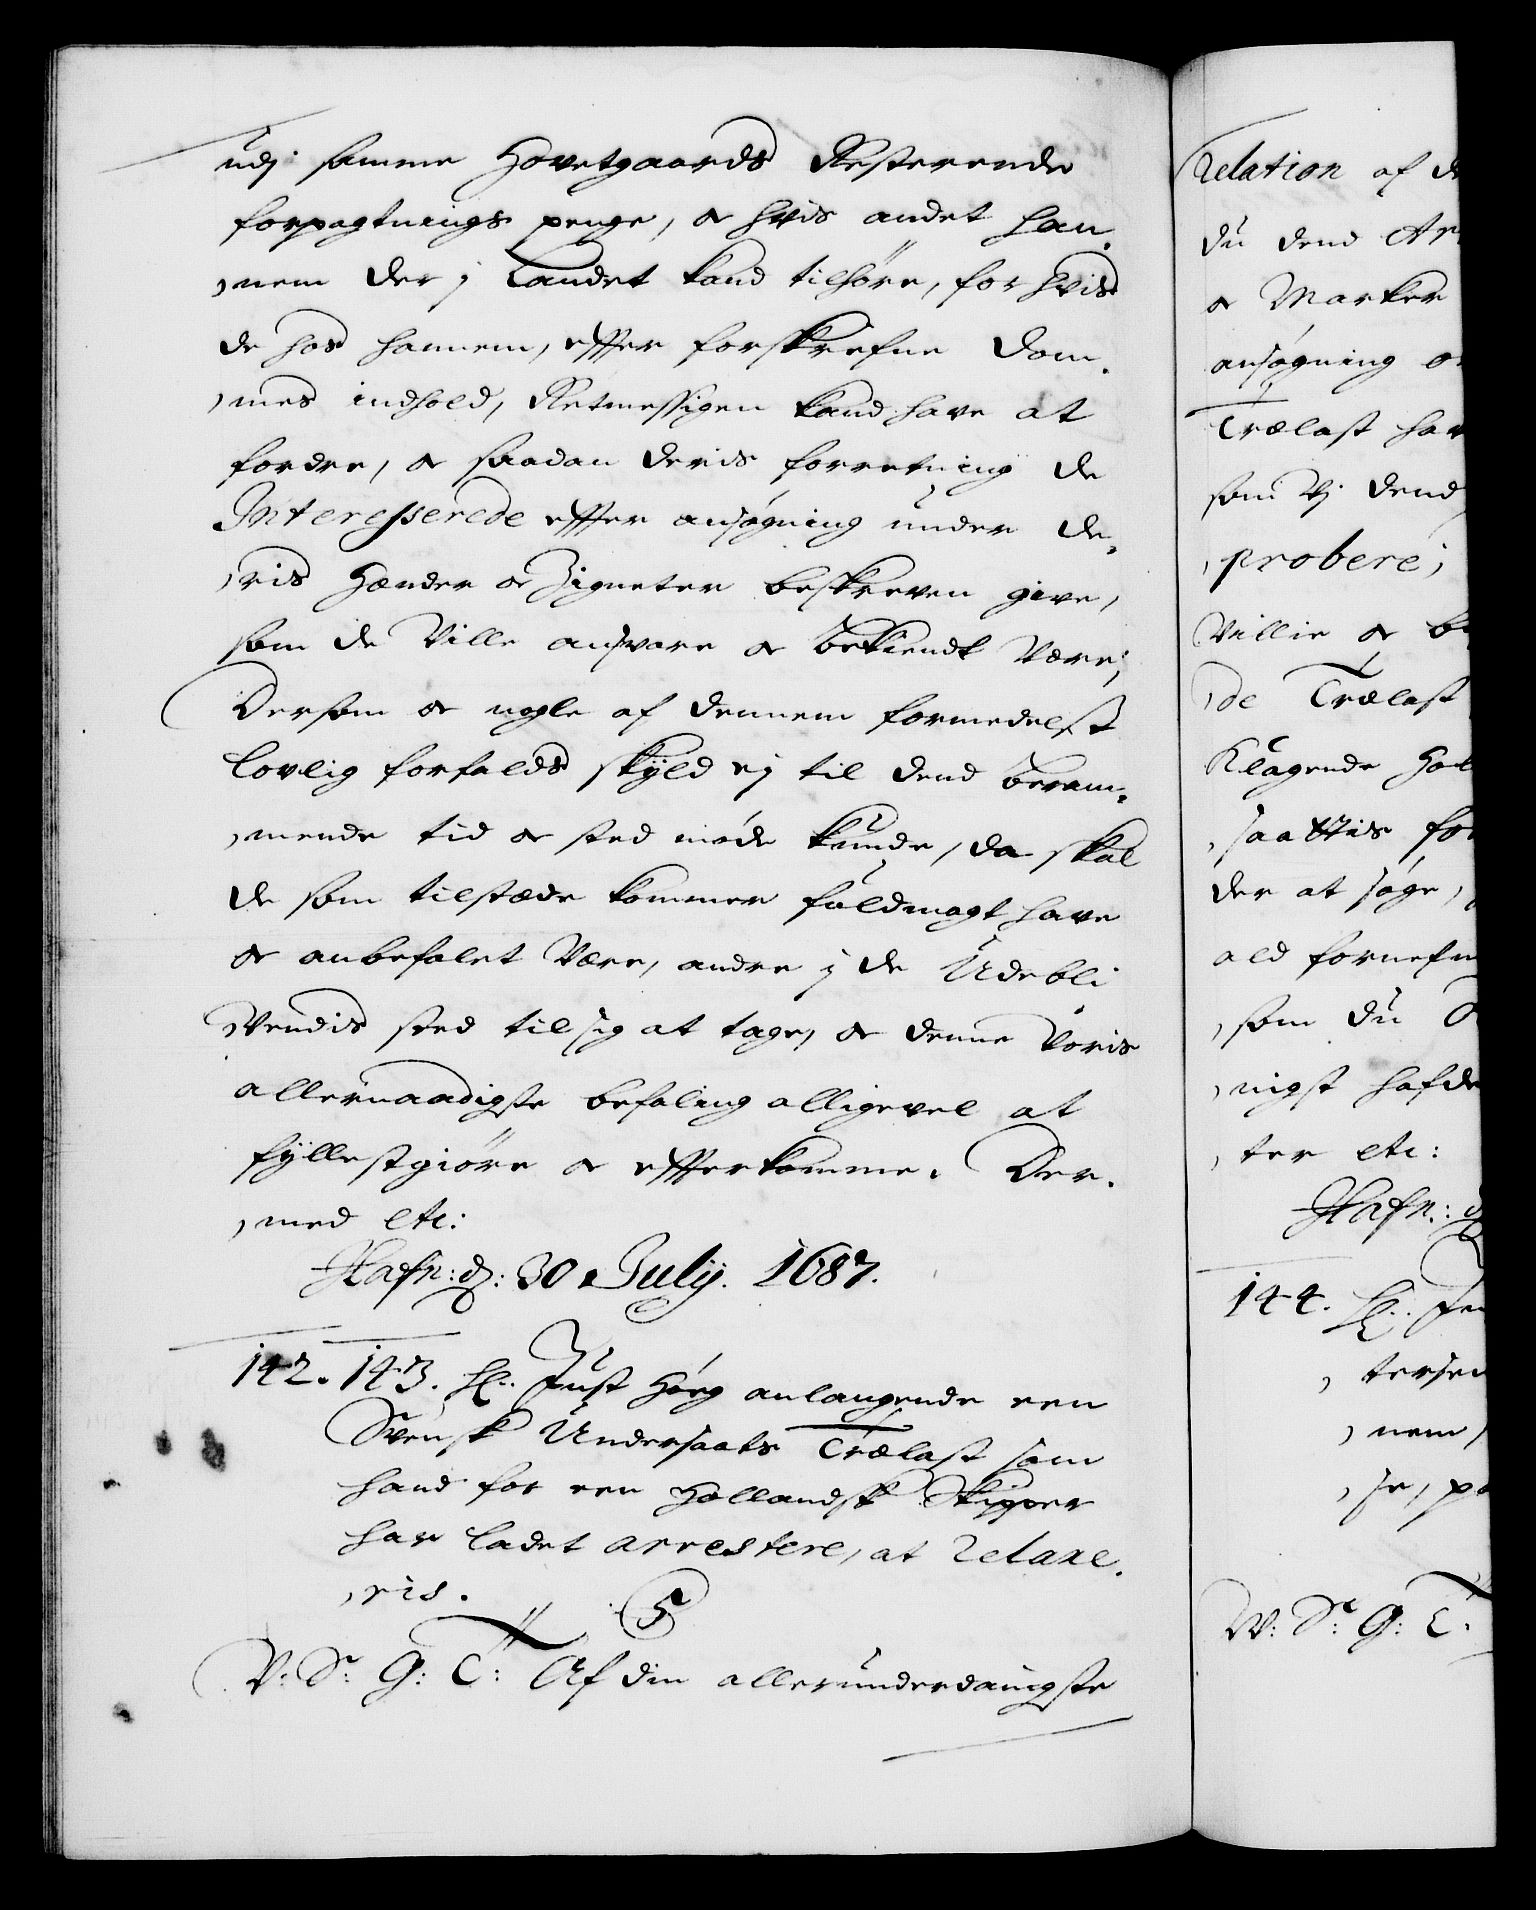 udj samme Hovetgaards Resterende
forpagtnings penge, & hvis andet han,
,nem der j Landet kand tilhøre, for hvis
de hos hannem, effter forskrefne Dom,
,mes indhold, Retmessigen kand have at
fordre, & saadan deris forretning de
Interesserede effter ansøgning under de,
,ris Hænder & Zigneter beskreven give,
som de Ville ansvare & bekiendt Være;
Dersom & nogle af dennem formedelst
lovlig forfalds skyld ej til dend beram,
,mende tid & sted møde kunde, da skal
de som tilstæde kommer fuldmagt have
& anbefalet Være, andre j de Udebli
,Vendis sted til sig at tage, & denne Voris
allernaadigste befaling alligevel at
fyllestgiøre & effterkomme. Der,
,med etc:
Hafn: d: 30 Julij. 1687.
142. 143. H: Just Høeg anlangende een
Svensk Undersaats Trælast som
hand for een Hollandsk Skipper
har ladet arrestere, at relaxe,
,ris.
V: Sr: G: T: Af din allerunderdanigste
relation af de
du dend Ar
& Marker
ansøgning o
Trælast har
som Vj dend
,probere;
Villie & be
,de Trælast
Klagende Hol
,saattis for
der at søge,
ald fornefn
,som du
,nigst hafde
,ter etc:
Hafn: d
144. H:
,tersen
,nem,
,se, p
V: Sr: G: T: